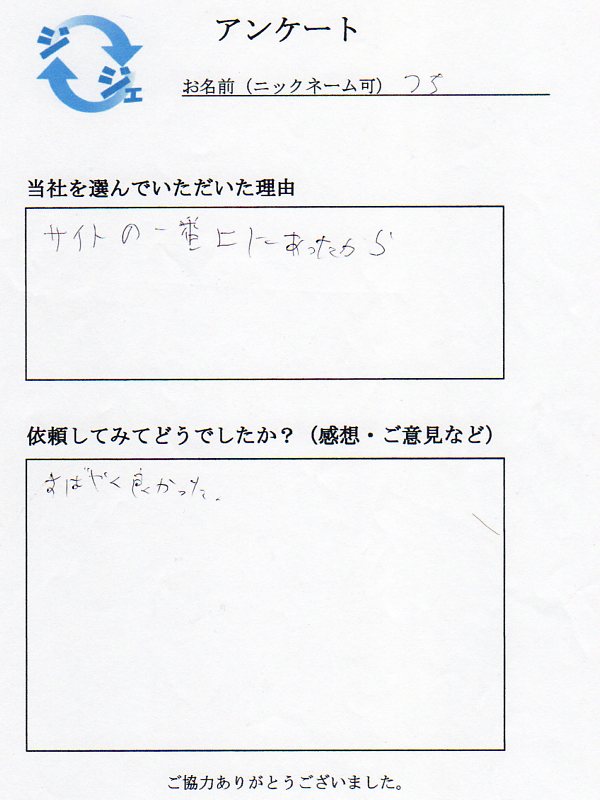 ジジェ
アンケート
お名前（ニックネーム可） つち
当社を選んでいただいた理由
サイトの一番上にあったから
依頼してみてどうでしたか？（感想・ご意見など）
すばやく良かった。
ご協力ありがとうございました。